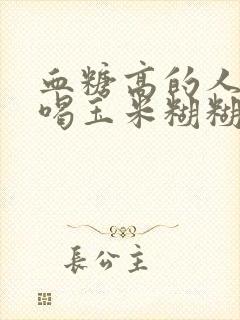 血糖高的人
喝玉米糊糊
長公主